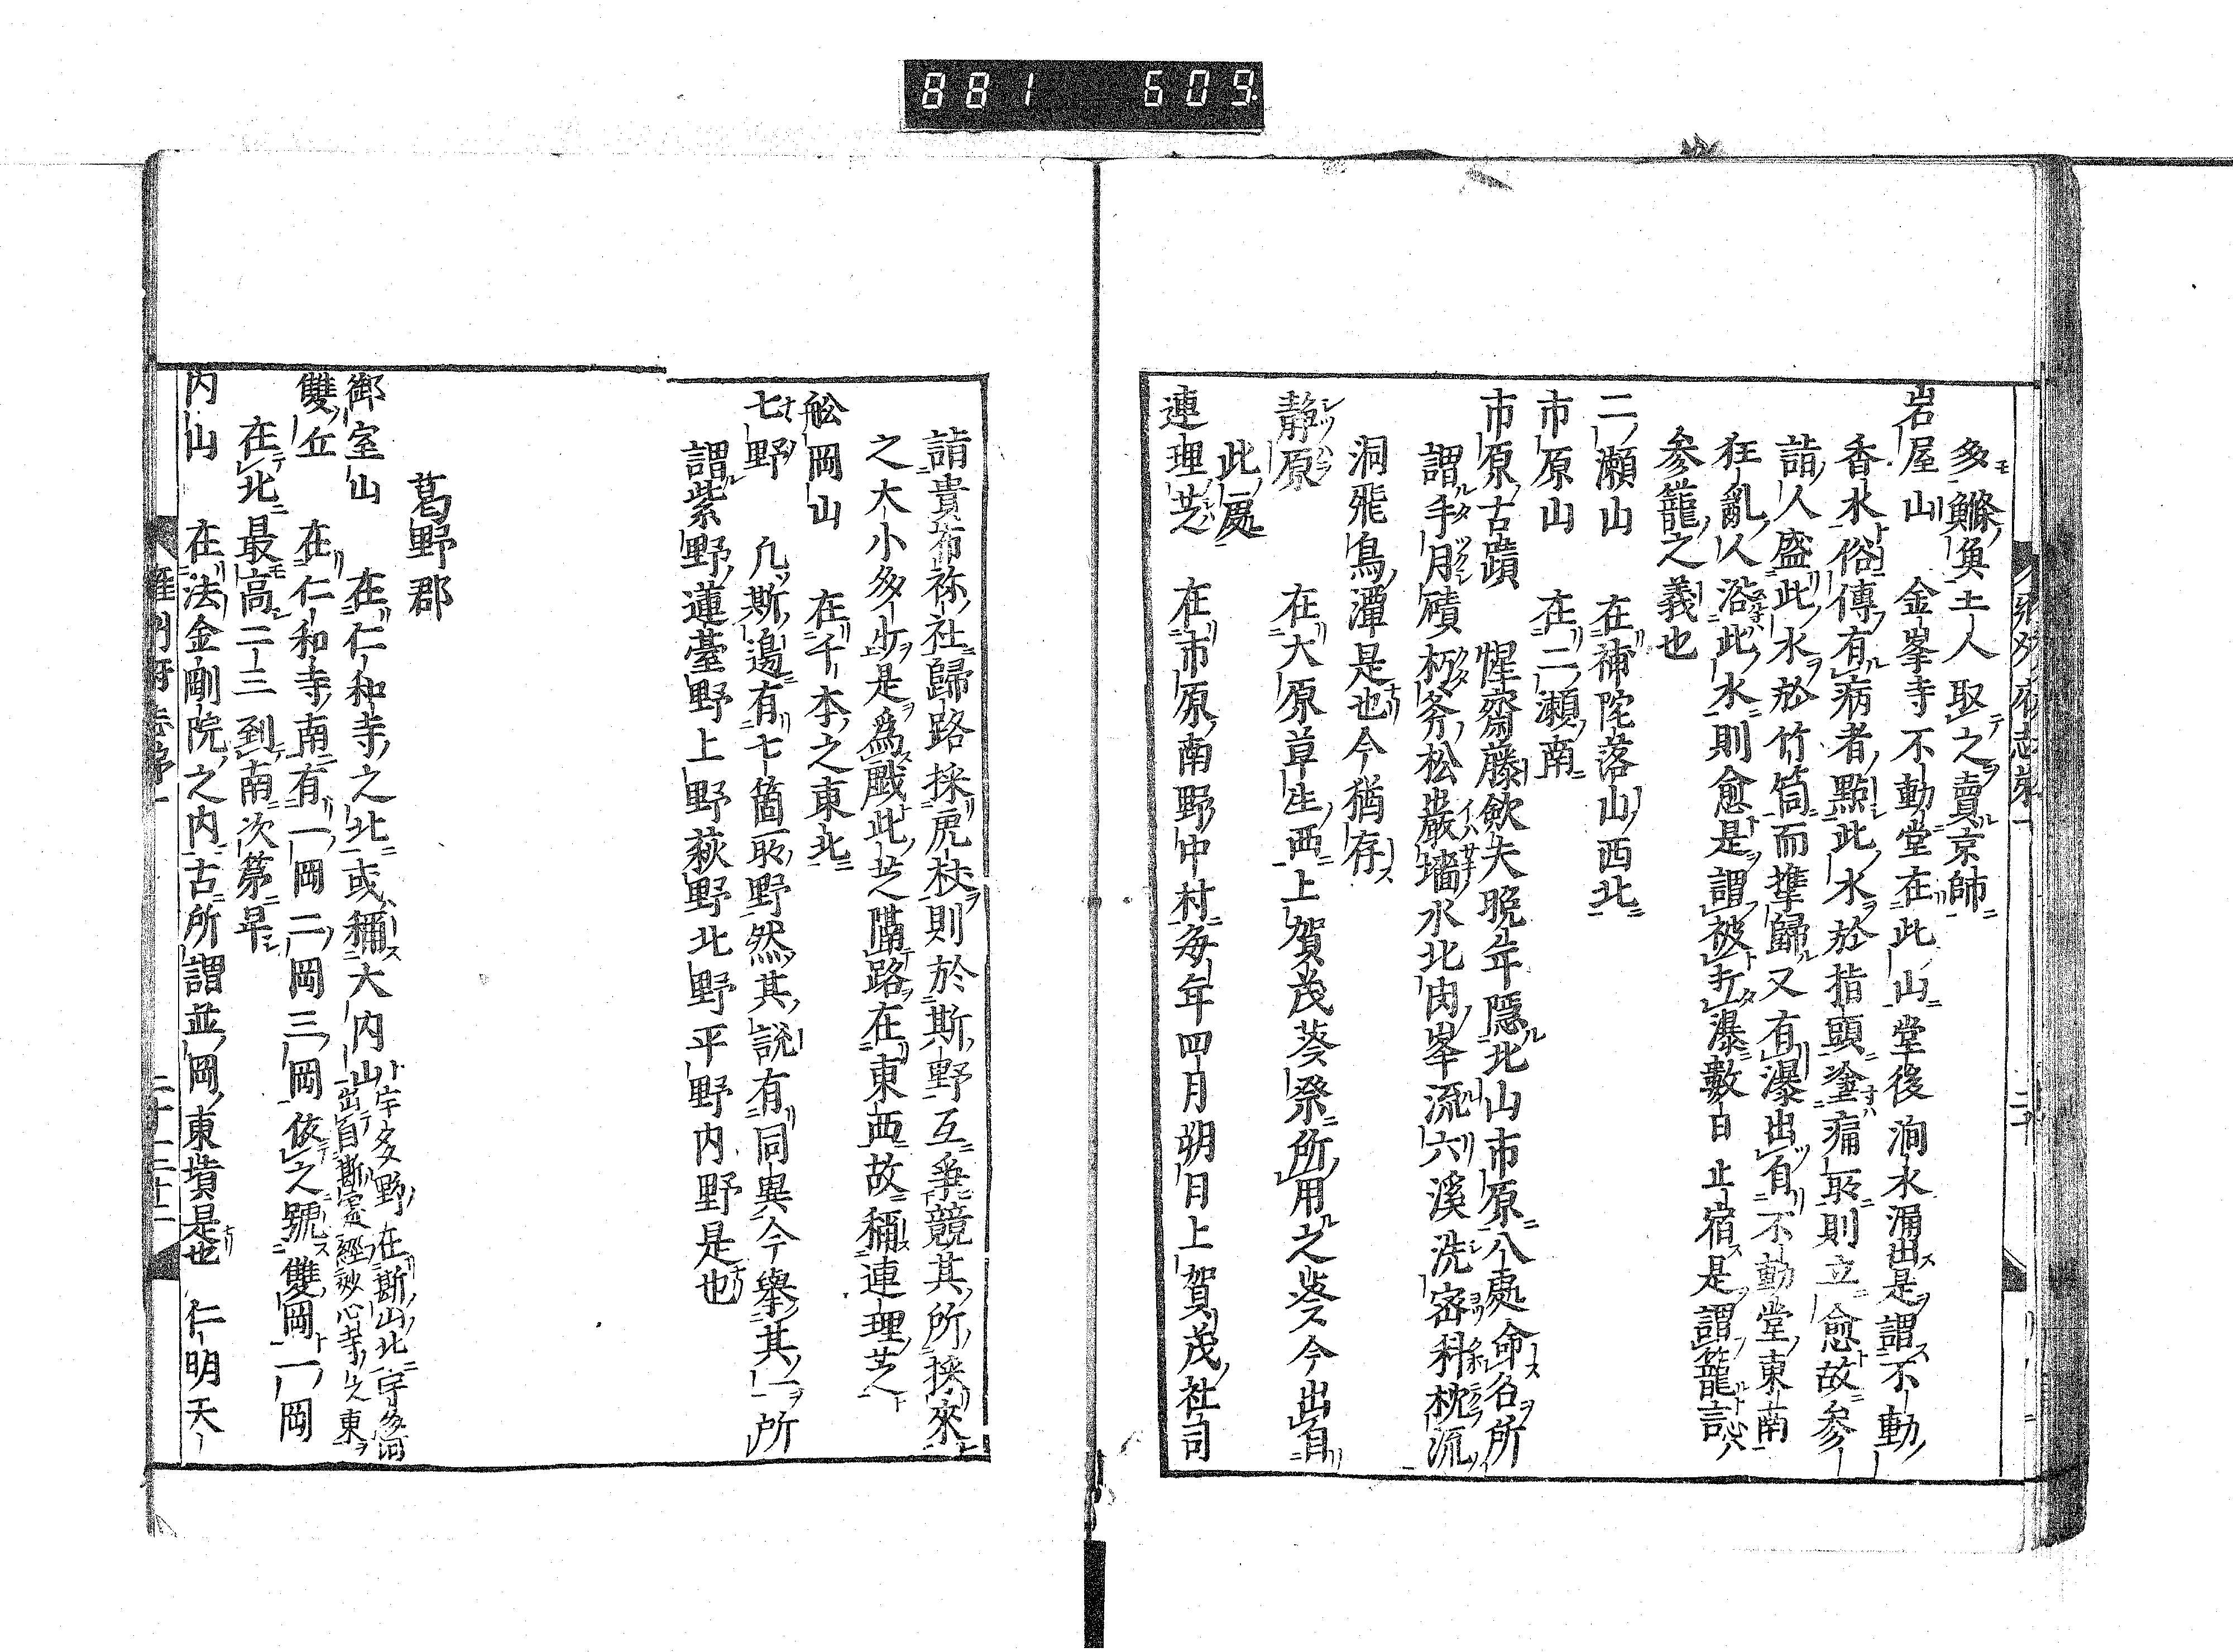 881 609
多鰷魚土人取之賣京師
岩屋山 金峯寺不動堂在此山堂後澗水漏出是謂不動
香水俗傳有病者點此水於指頭塗痛所則立愈故参
詣人盛此水於竹筒而携歸又有瀑出自不動堂東南
狂亂人浴此水則愈是謂被打瀑數日止宿是謂籠言
参籠之義也
二瀬山 在補陀落山西北
市原山 在二瀬南
市原古蹟 惺齋藤歛夫晩年隱北山市原八處命名所
謂手月磧朽斧松巖墻水北肉峯流六溪洗密科枕流
洞飛鳥潭是也今猶存
静原 在大原草生西上賀茂葵祭所用之葵今出自
此處
連理芝 在市原南野中村毎年四月朔日上賀茂社司
詣貴布祢社歸路採虎杖則於斯野互爭競其所挾來
之大小多少是爲戲此芝隣路在東西故稱連理芝
舩岡山 在千本之東北
七野 凡斯邉有七箇所野然其説有同異今擧其一所
謂紫野蓮臺野上野萩野北野平野内野是也
葛野郡
御室山 在仁和寺之北或稱大内山宇多野在斯山北宇多河
出自斯處經妙心寺之東
雙丘 在仁和寺南有一岡二岡三岡依之號雙岡一岡
在北最高二三到南次第卑
内山 在法金剛院之内古所謂並岡東墳是也 仁明天
雍州府志第一 二十二